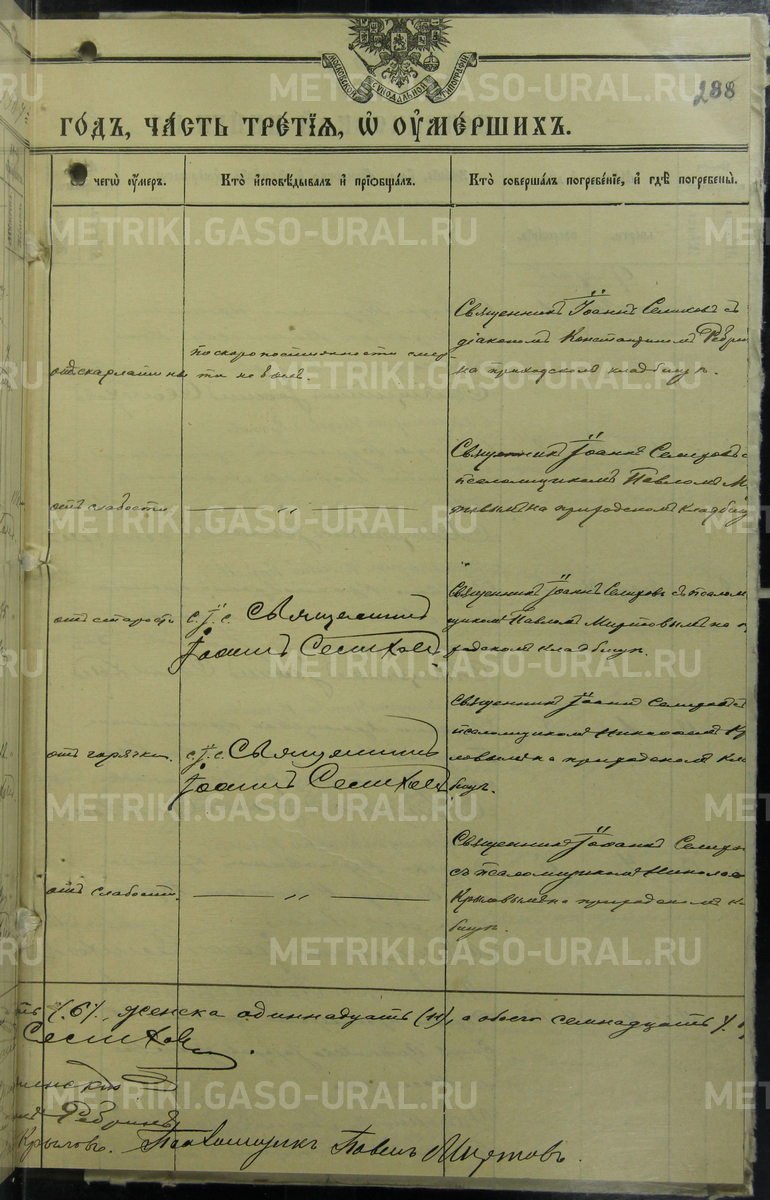 МОСКОВСКОЙ СѴНОДАЛЬНОЙ ТИПОГРАФІИ
288
ГОДЪ, ЧАСТЬ ТРЕТІЯ, Ѡ ОУМЕРШИХЪ.
чегѡ оумеръ. Кто исповѣдывалъ и пріобщалъ. Кто совершалъ погребеніе, и гдѣ погребены.
отъ скарлатины
по скоропостижности смер
ти не былъ.
Священникъ Іоаннъ Селиховъ съ
діакономъ Константиномъ Ребри
на приходскомъ кладбищѣ.
отъ слабости
— „ —
Священникъ Іоаннъ съ
псаломщикомъ Павломъ М
на приходскомъ кладбищ
отъ старости
с. І. с. Священникъ
Іоаннъ Селиховъ
Священникъ Іоаннъ съ псалом
щикомъ Павломъ Миртовымъ на п
кладбищѣ.
отъ горячки.
с. І. с. Священникъ
Іоаннъ Селиховъ
Священникъ Іоаннъ съ
псаломщикомъ Николаемъ Кр
ловымъ на приходскомъ кла
бищѣ.
отъ слабости.
— „ —
Священникъ Іоаннъ
съ псаломщикомъ Николае
Крыловымъ на приходскомъ к
бищѣ.
ть (6), женска одиннадцать (11), а обоего семнадцать
Селиховъ
Ребринъ
Крыловъ. Псаломщикъ Павелъ Миртовъ.
METRIKI.GASO-URAL.RU